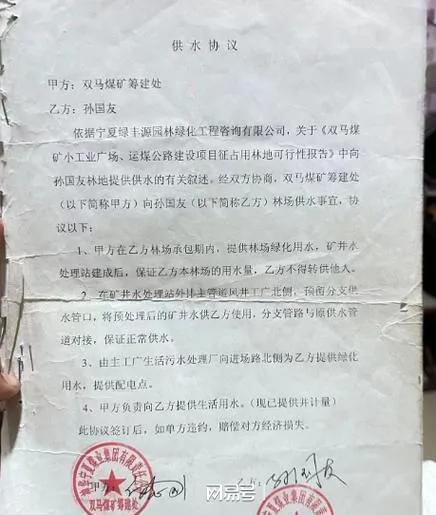 供水协议
甲方：双马煤矿筹建处
乙方：孙国友
依据宁夏绿丰源园林绿化工程咨询有限公司，关于《双马煤
矿小工业广场、运煤公路建设项目征占用林地可行性报告》中向
孙国友林地提供供水的有关叙述。经双方协商，双马煤矿筹建处
（以下简称甲方）向孙国友（以下简称乙方）林场供水事宜，协
议以下：
1、甲方在乙方林场承包期内，提供林场绿化用水，矿井水
处理站建成后，保证乙方本林场的用水量，乙方不得转供他人。
2、在矿井水处理站外排主管道风井工广北侧，预留分支供
水管口，将预处理后的矿井水供乙方使用，分支管路与原供水管
道对接，保证正常供水。
3、由主工广生活污水处理厂向进场路北侧为乙方提供绿化
用水，提供配电点。
4、甲方负责向乙方提供生活用水。（现已提供并计量）
此协议签订后，如单方违约，赔偿对方经济损失。
甲方：
乙方：孙国友
宁夏煤业集团有限责任
双马煤矿筹建处
夏煤业集团有限
网易号